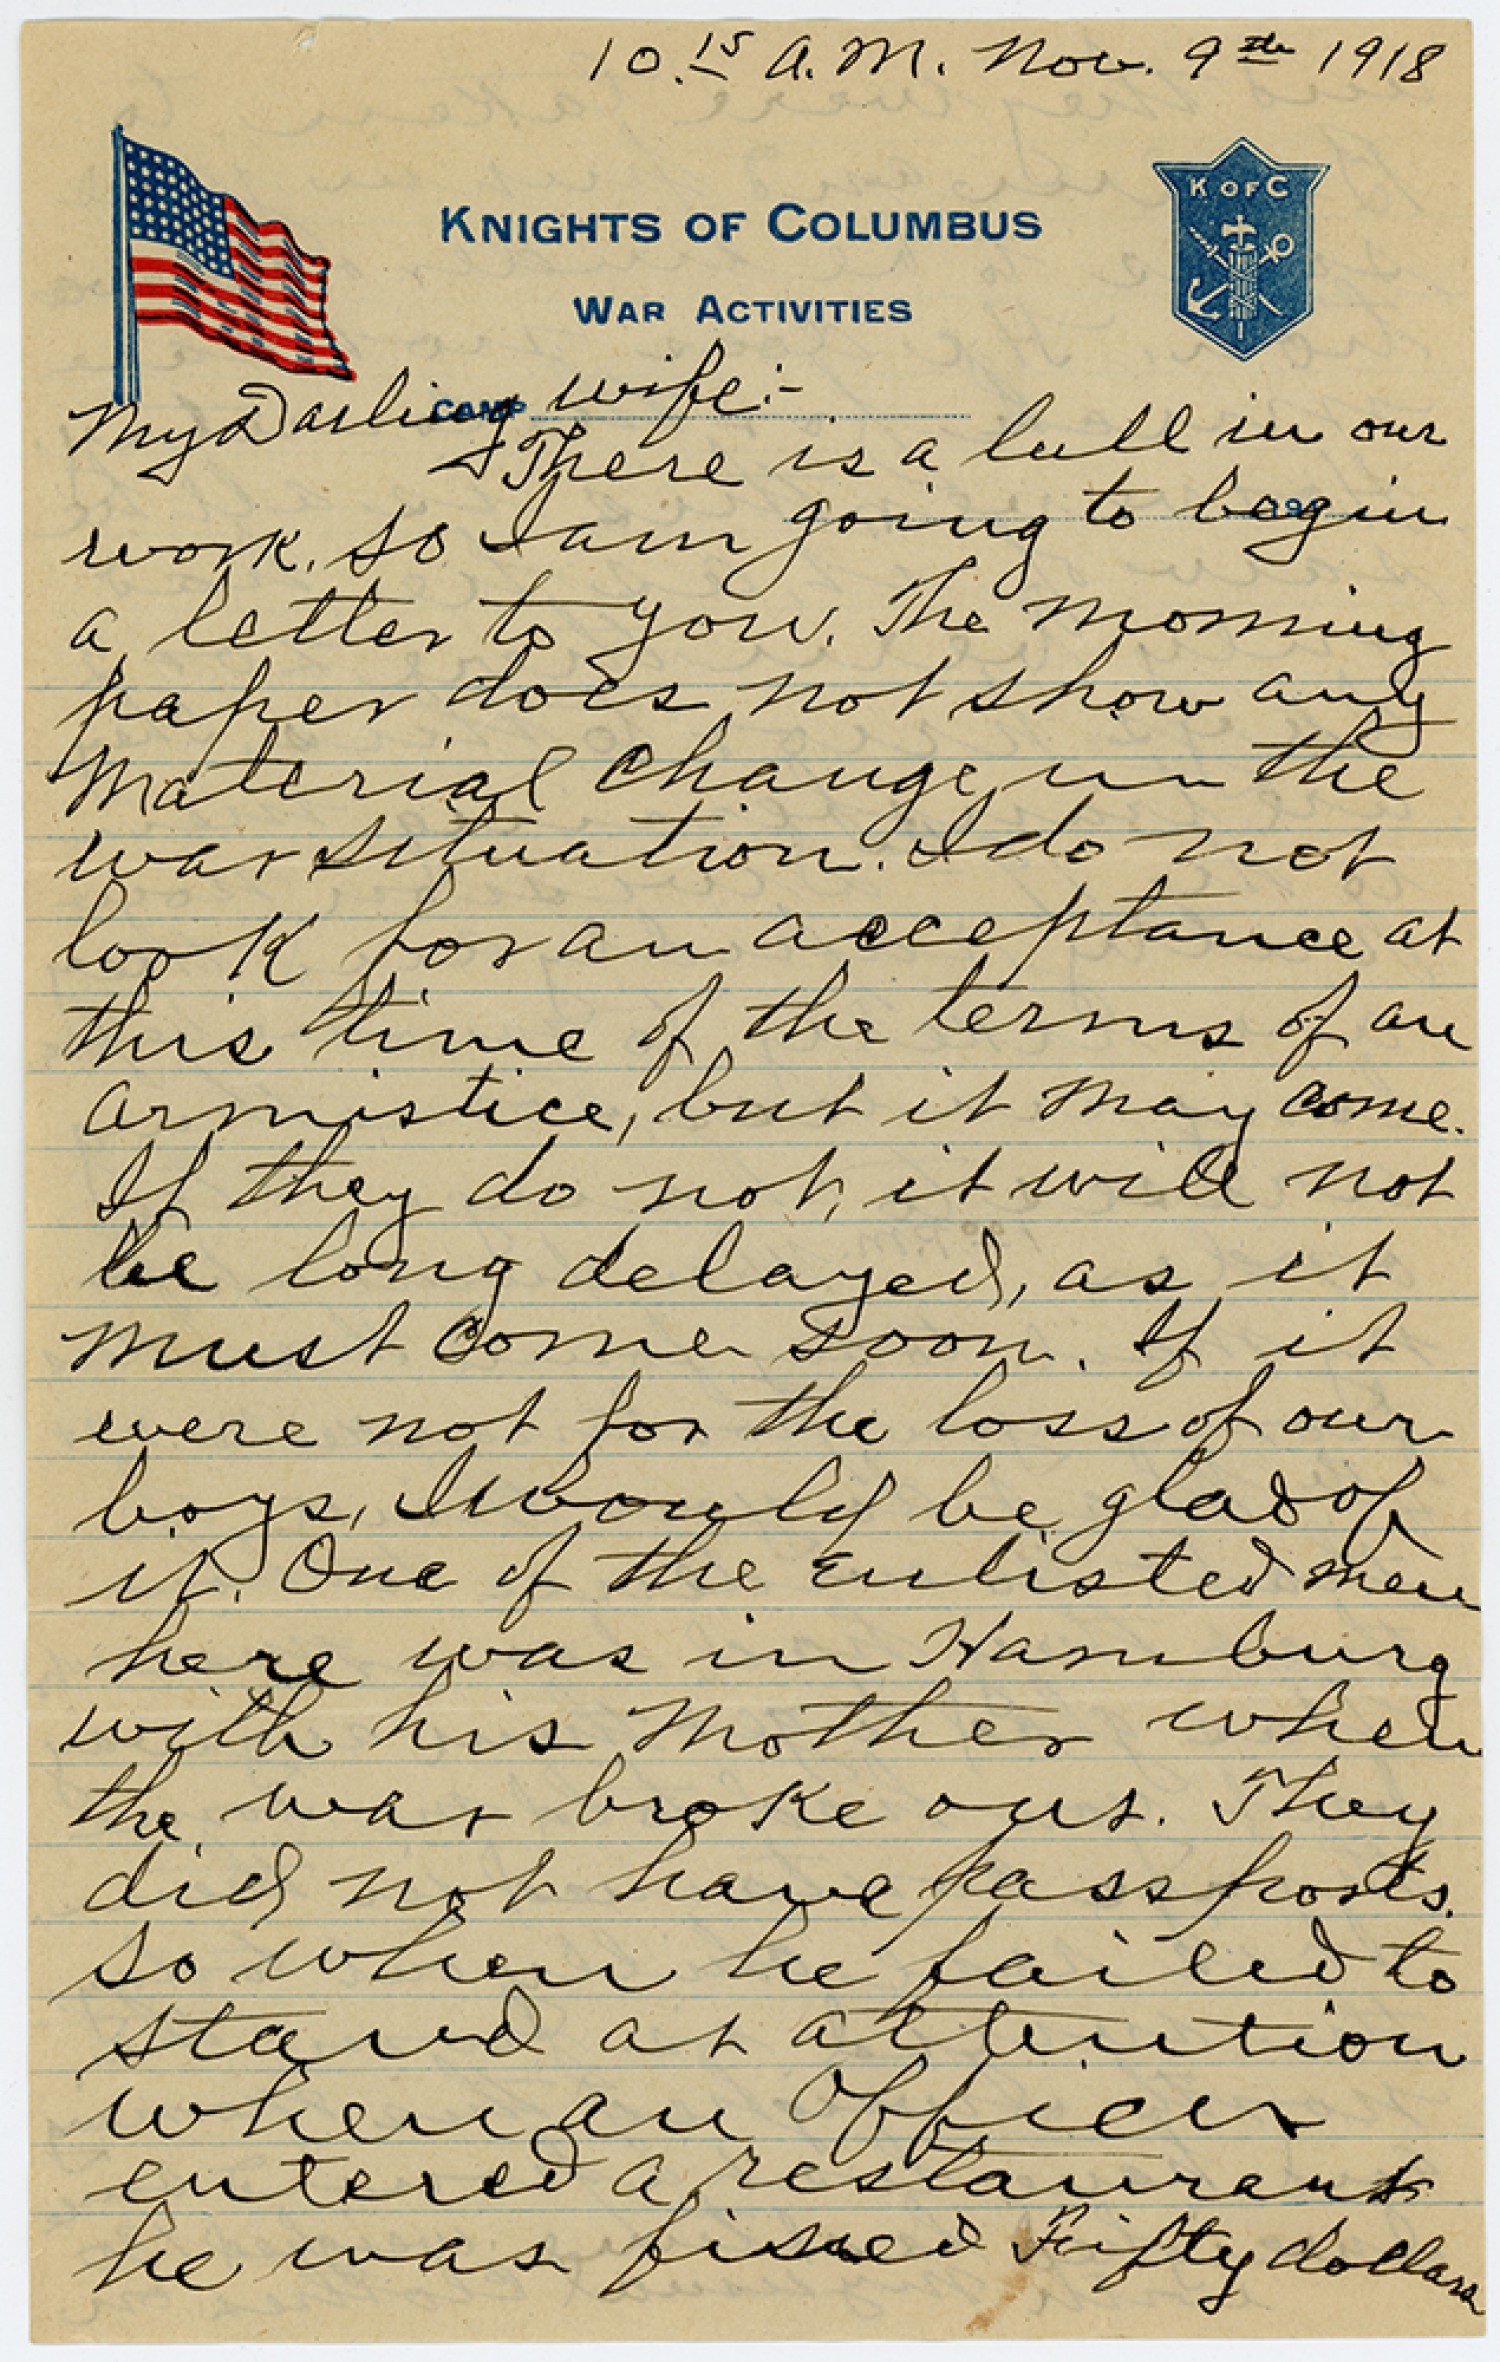 10.15 A.M. Nov. 9th 1918
K OF C
KNIGHTS OF COLUMBUS
WAR ACTIVITIES
CAMP
My Darling wife:-
There is a lull in our
191
work. So I am going to begin
a letter to you. The morning
paper does not show any
material change in the
war situation. I do not
look for an acceptance at
this time of the terms of an
armistice, but it may come.
If they do not, it will not
be long delayed, as it
must come soon. If it
were not for the loss of our
boys, I would be glad of
it. One of the enlisted men
here was in Hamburg
with his mother when
the war broke out. They
did not have passports.
So when he failed to
stand at attention
when an officer
entered a restaurant
he was fined Fifty dollars